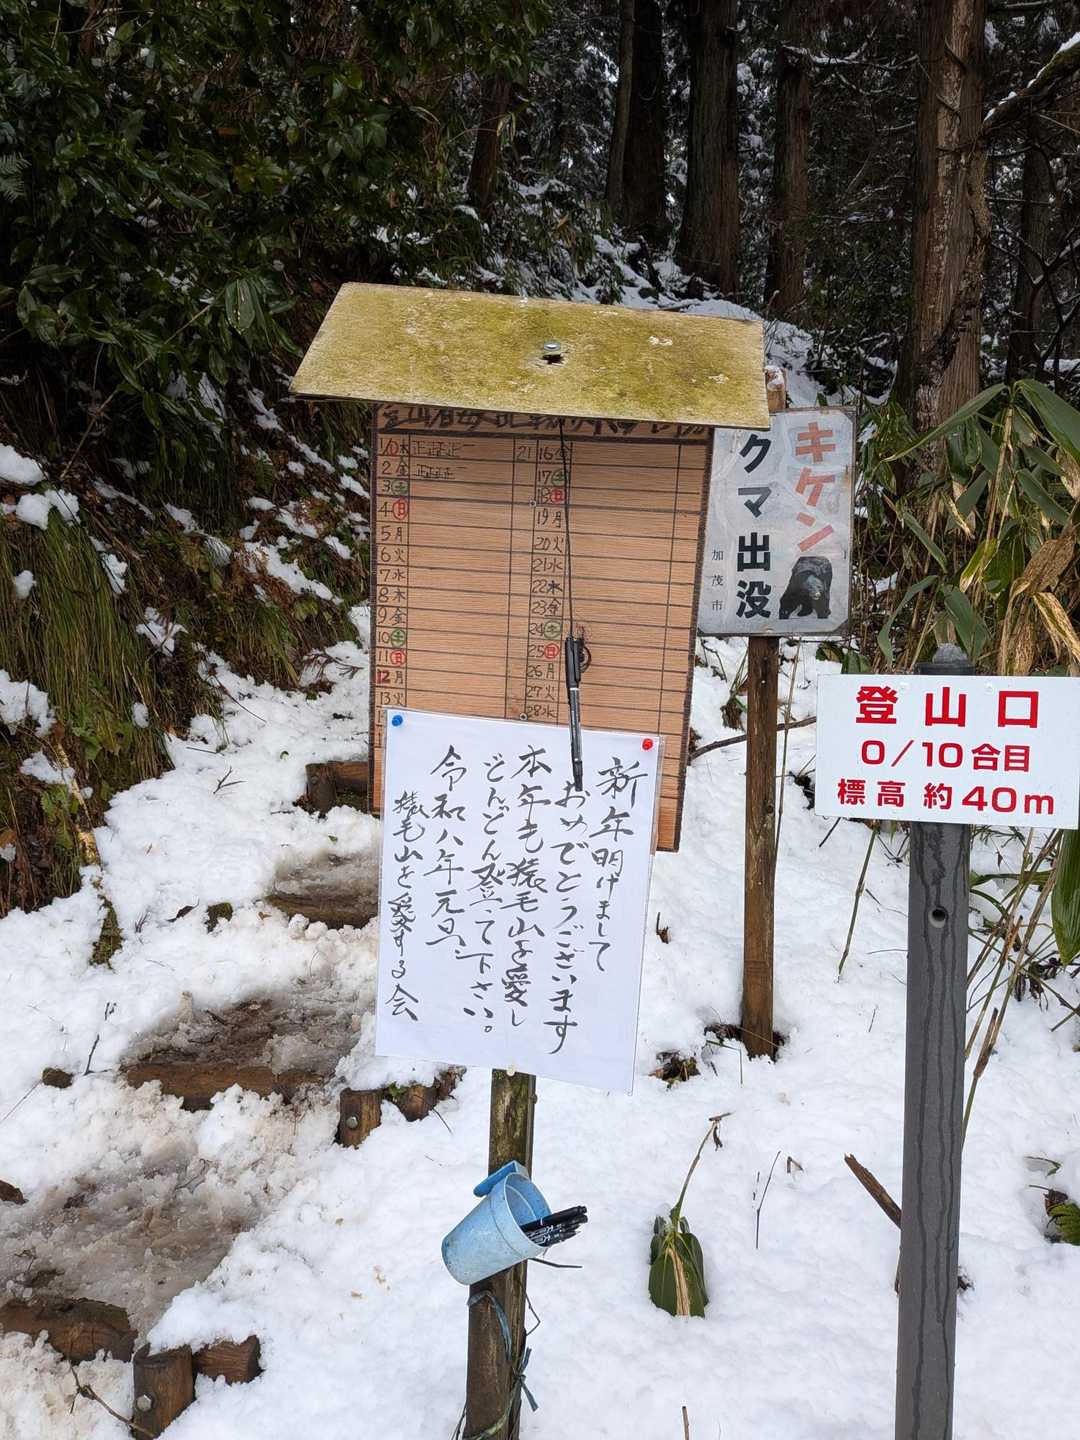 1/1 木 正正正正 21
2 金 正正正正
3 土
4 日
5 月
6 火
7 水
8 木
9 金
10 土
11 日
12 月
13 火
16 金
17 土
18 日
19 月
20 火
21 水
22 木
23 金
24 土
25 日
26 月
27 火
28 水
新年明けまして
おめでとうございます
本年も猿毛山を愛し
どんどん登って下さい。
令和八年元旦
猿毛山を愛する会
キケン
クマ出没
加茂市
登山口
0/10合目
標高 約40m